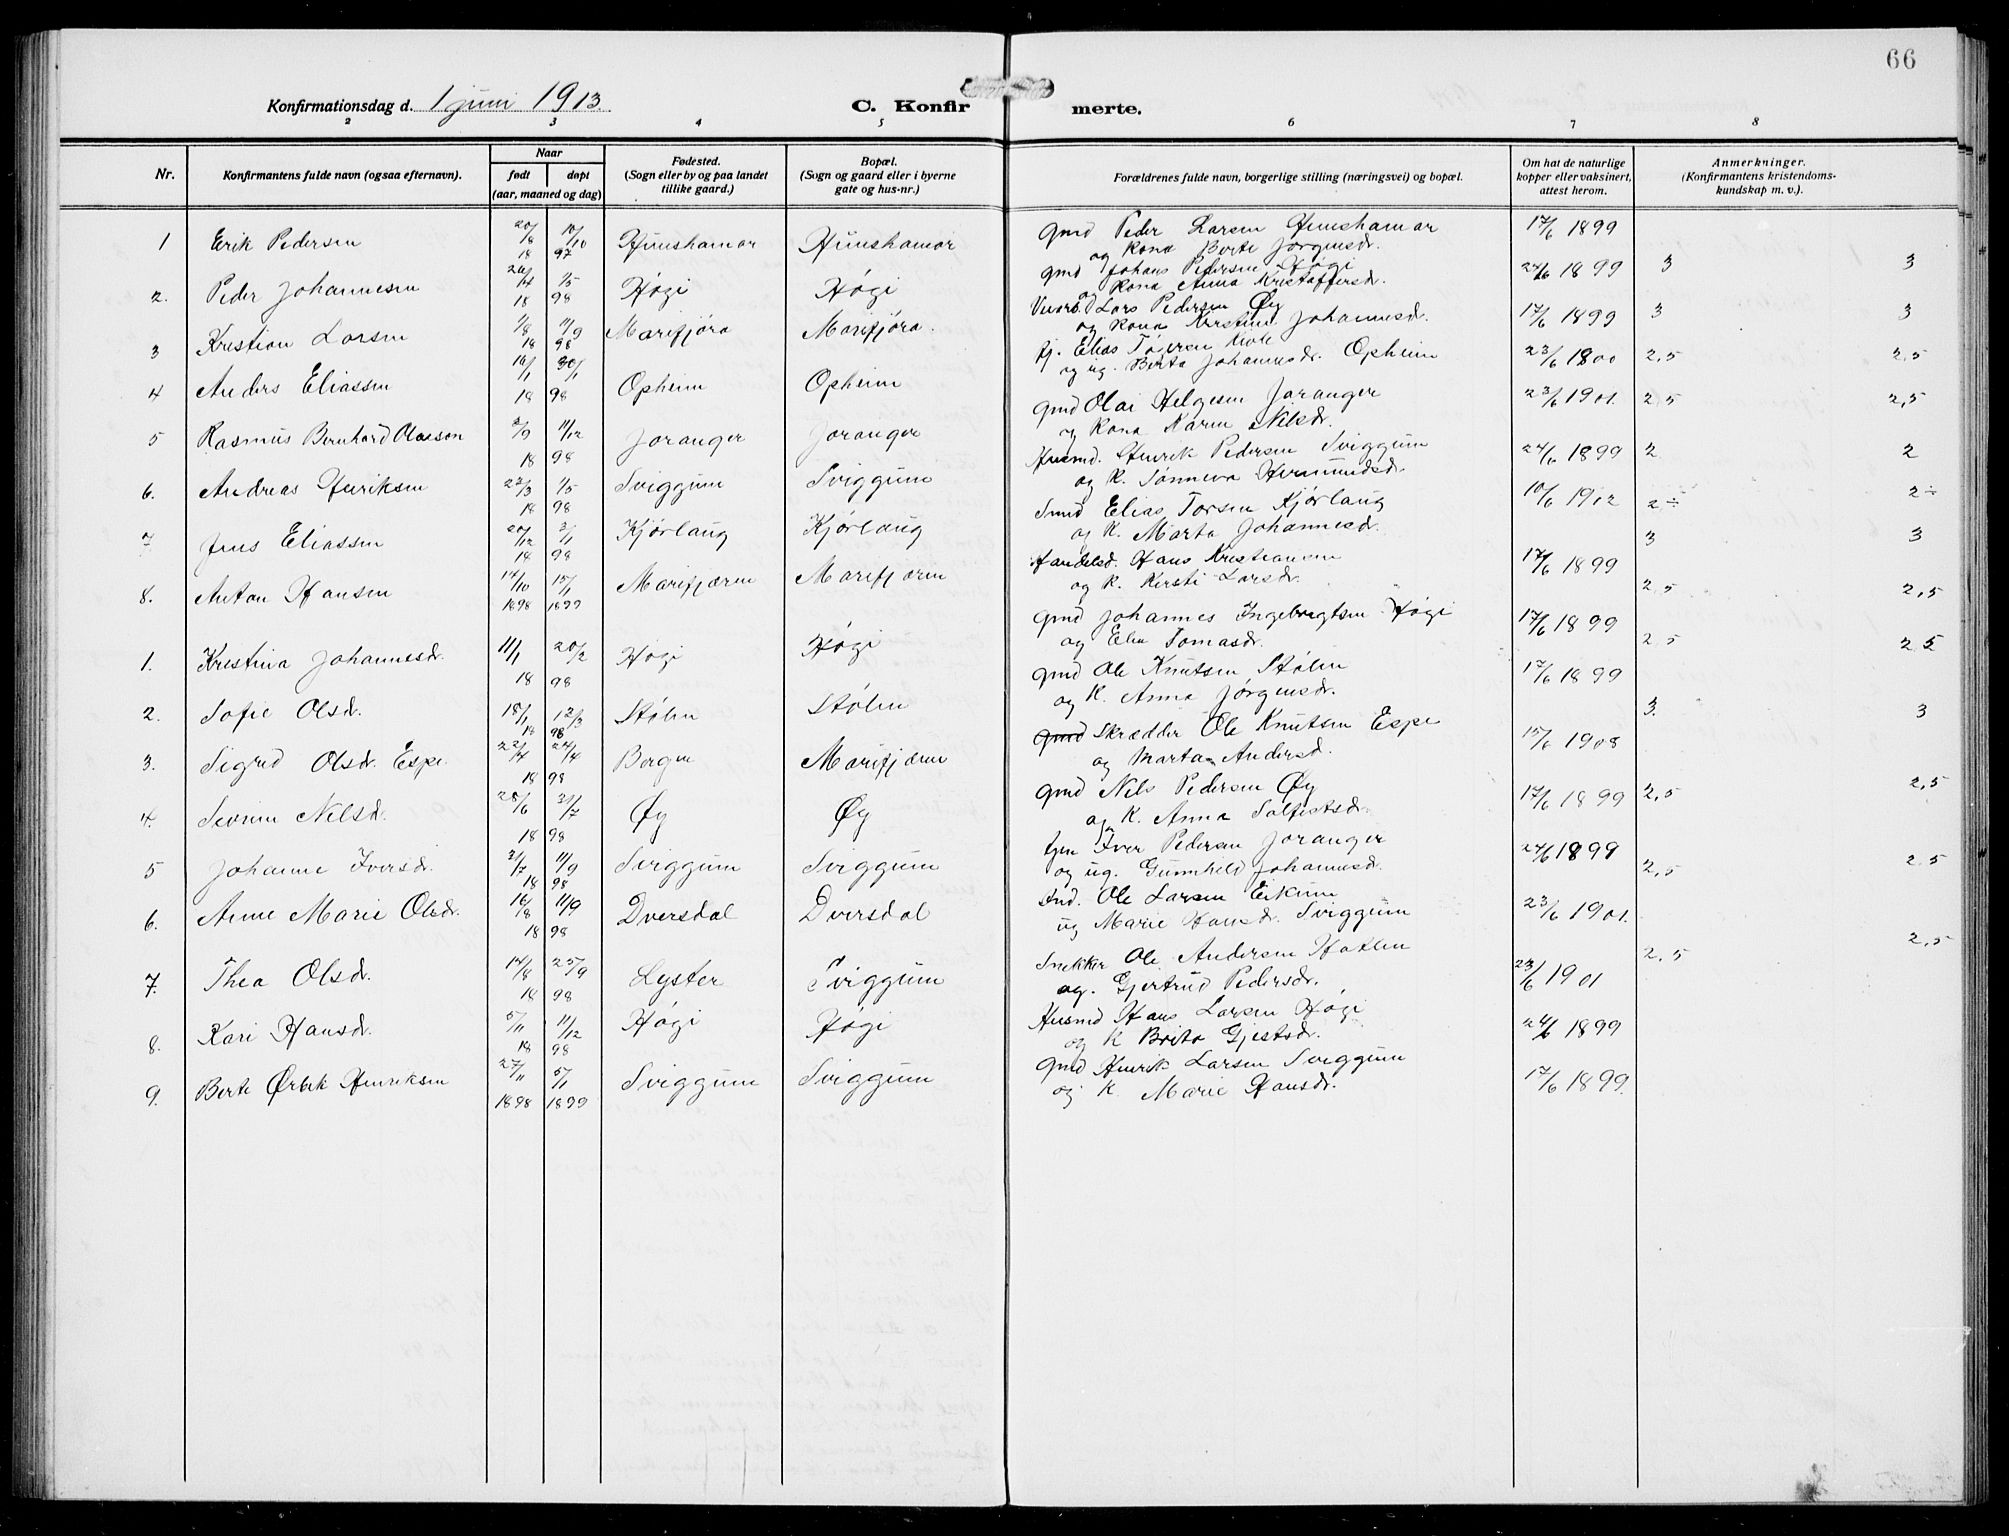 66
Konfirmationsdag d. 1 juni 1913.
C. Konfirmerte.
2 3 4 5 6 7 8
Nr.
Konfirmantens fulde navn (ogsaa efternavn).
Naar
født døpt
(aar, maaned og dag)
Fødested.
(Sogn eller by og paa landet
tillike gaard.)
Bopæl.
(Sogn og gaard eller i byerne
gate og hus-nr.)
Forældrenes fulde navn, borgerlige stilling (næringsvei) og bopæl.
Om hat de naturlige
kopper eller vaksinert,
attest herom.
Anmerkninger.
(Konfirmantens kristendoms-
kundskap m. v.).
1 Erik Pedersen 20/8 1897 10/10 Hunshamar Hunshamar Gmd Peder Larsen Hunshamar 17/6 1899
og kona Berte Jørgensdr.
2. Peder Johannesen 26/4 1/5 1898 Høgi Høgi Gmd Johans Pedersen Høgi 24/6 1899 3 3
og kona Anna Kristaffersdr.
3 Kristian Larsen 1/8 11/9 1898 Marifjøra Marifjøra. Lars Pedersen Øy 17/6 1899 3 3
og kona Kristine Johannesdr.
4 Anders Eliassen 16/1 30/1 1898 Opheim Opheim Elias 23/6 1800 2,5 2,5
og ug. Berta Johannesdr. Opheim
5 Rasmus Bernhard Olasson 2/9 11/12 1898 Joranger Joranger Gmd Olai Helgesen Joranger 23/6 1901. 2 5 2,5
og kona Karen Nilsdr.
6. Andreas Henriksen 22/3 1/5 1898 Sviggum Sviggum Husmd. Henrik Pedersen Sviggum 24/6 1899 2 2
og K. Sønneva Hermundsdr.
7 Jens Eliassen 20/12 2/1 1898 Kjørlaug Kjørlaug Smed Elias Torsen Kjørlaug 10/6 1912 2÷ 2÷
og K. Marta Johannesdr. 3 3
8. Anton Hansen 14/10 1898 15/1 1899 Marifjæren Marifjæren Handelsd. Hans Kristiansen 17/6 1899
og K. Kersti Larsdr. 2,5 2,5
1. Kristina Johannesdr. 11/1 20/2 1898 Høgi Høgi Gmd Johannes Ingebregtsen Høgi 17/6 1899
og Elen Tomasdr. 2 5 2 5
2. Sofie Olsdr. 18/1 13/3 1898 Stølen Stølen Gmd Ole Knutsen Stølen 17/6 1899
og K. Anna Jørgensdr. 3. 3
3. Sigrid Olsdr. Espe 22/4 24/4 1898 Bergen Marifjæren Gmd Skrædder Ole Knutsen Espe 15/6 1908
og Marta Andersd.
4. Severine Nelsd. 28/6 31/7 1898 Øy Øy Gmd Nels Pedersen Øy 17/6 1899 2,5 2,5
og K. Anna Salfestsdr.
5 Johanne Iversdr. 21/7 11/9 1898 Sviggum Sviggum Iver Pedersen Joranger 24/6 1899
og ug. Gunnhild Johannesd. 2,5 2,5
6. Anne Marie Olsdr. 16/8 11/9 1898 Dversdal Dversdal Ind. Ole Larsen Eikum 23/6 1901.
ug Marie Hansdr. Sviggum
7. Thea Olsdr. 14/8 25/9 1898 Lyster Sviggum Snekker Ole Andersen 23/6 1901 2,5 2,5
og. Gjertrud Pedersdr.
8. Kari Hansdr. 5/11 11/12 1898 Høgi Høgi Husmd Hans Larsen Høgi 24/6 1899
og K Brita Gjestsdr.
9. Berte Ørbek Henriksen 27/11 1898 5/1 1899 Sviggum Sviggum Gmd Henrik Larsen Sviggum 17/6 1899.
og K. Marie Hansdr.